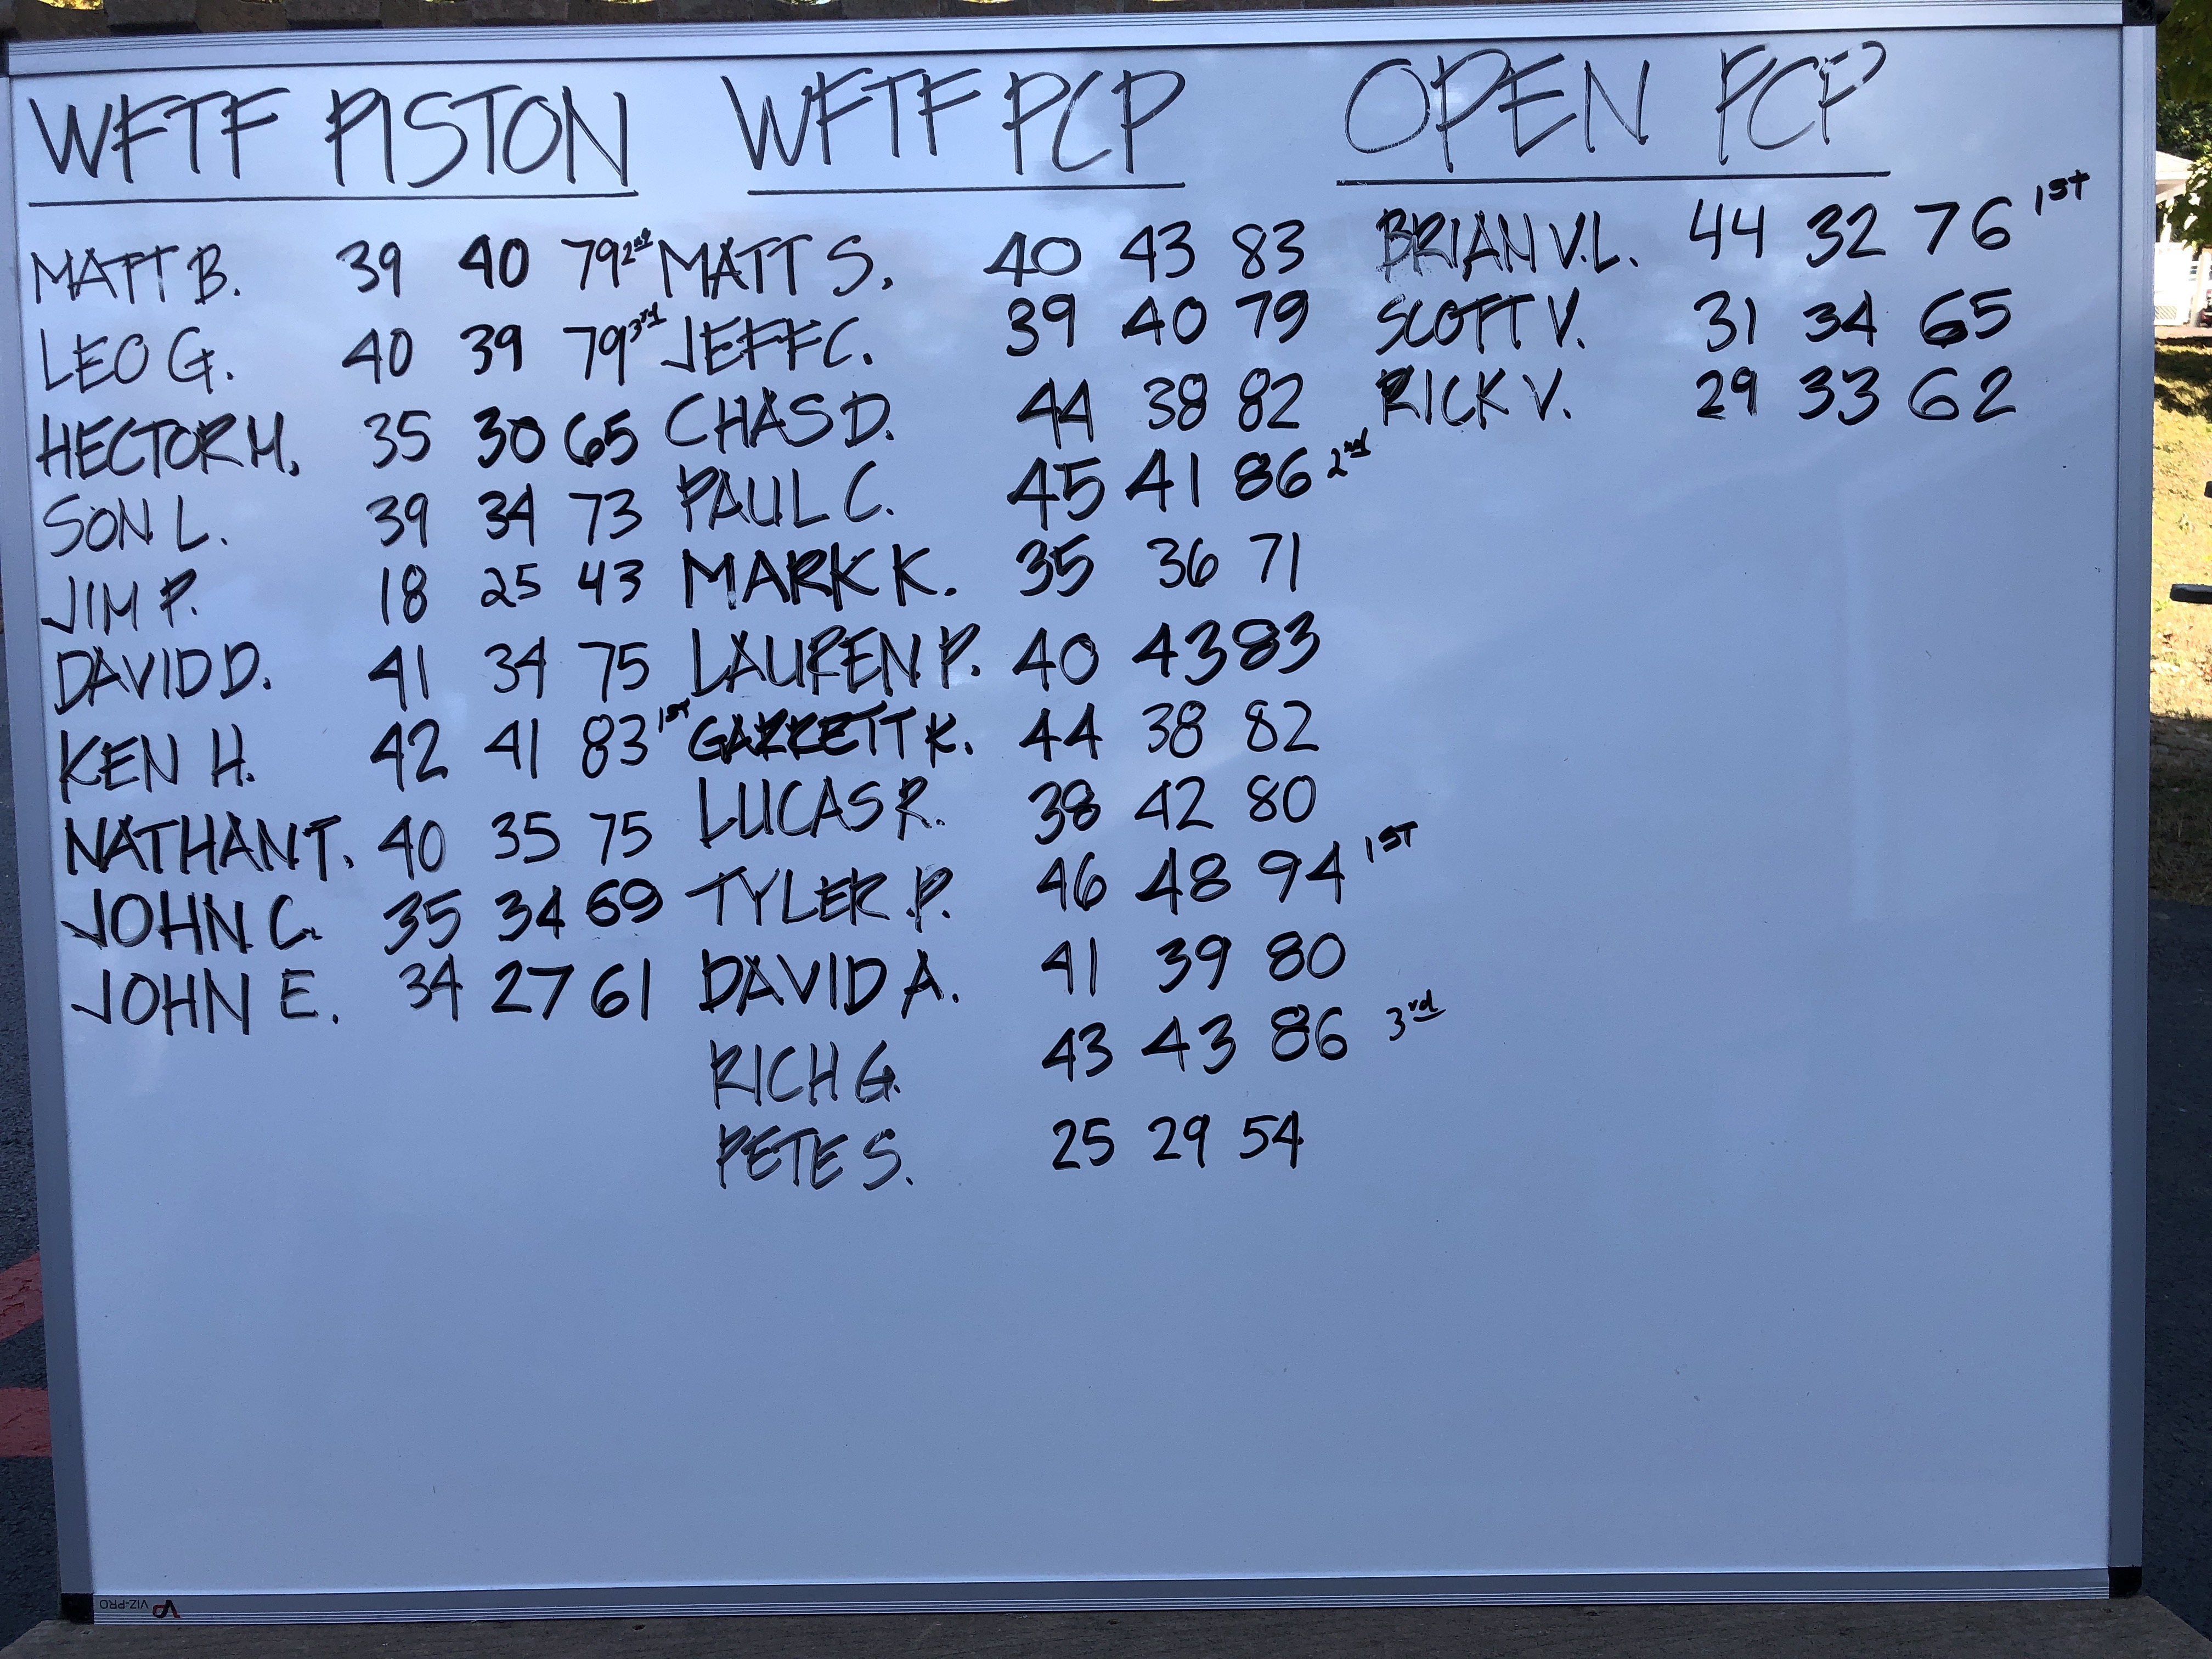 WFTF PISTON
MATT B. 39 40 79 2nd
LEO G. 40 39 79 3rd
HECTOR M. 35 30 65
SON L. 39 34 73
JIM P. 18 25 43
DAVID D. 41 34 75
KEN H. 42 41 83 1ST
NATHAN T. 40 35 75
JOHN C. 35 34 69
JOHN E. 34 27 61
WFTF PCP
MATT S. 40 43 83
JEFF C. 39 40 79
CHAS D. 44 38 82
PAUL C. 45 41 86 2nd
MARK K. 35 36 71
LAUREN P. 40 43 83
GARRETT K. 44 38 82
LUCAS R. 38 42 80
TYLER P. 46 48 94 1ST
DAVID A. 41 39 80
RICH G. 43 43 86 3rd
PETE S. 25 29 54
OPEN PCP
BRIAN V.L. 44 32 76 1ST
SCOTT V. 31 34 65
RICK V. 29 33 62
VIZ-PRO